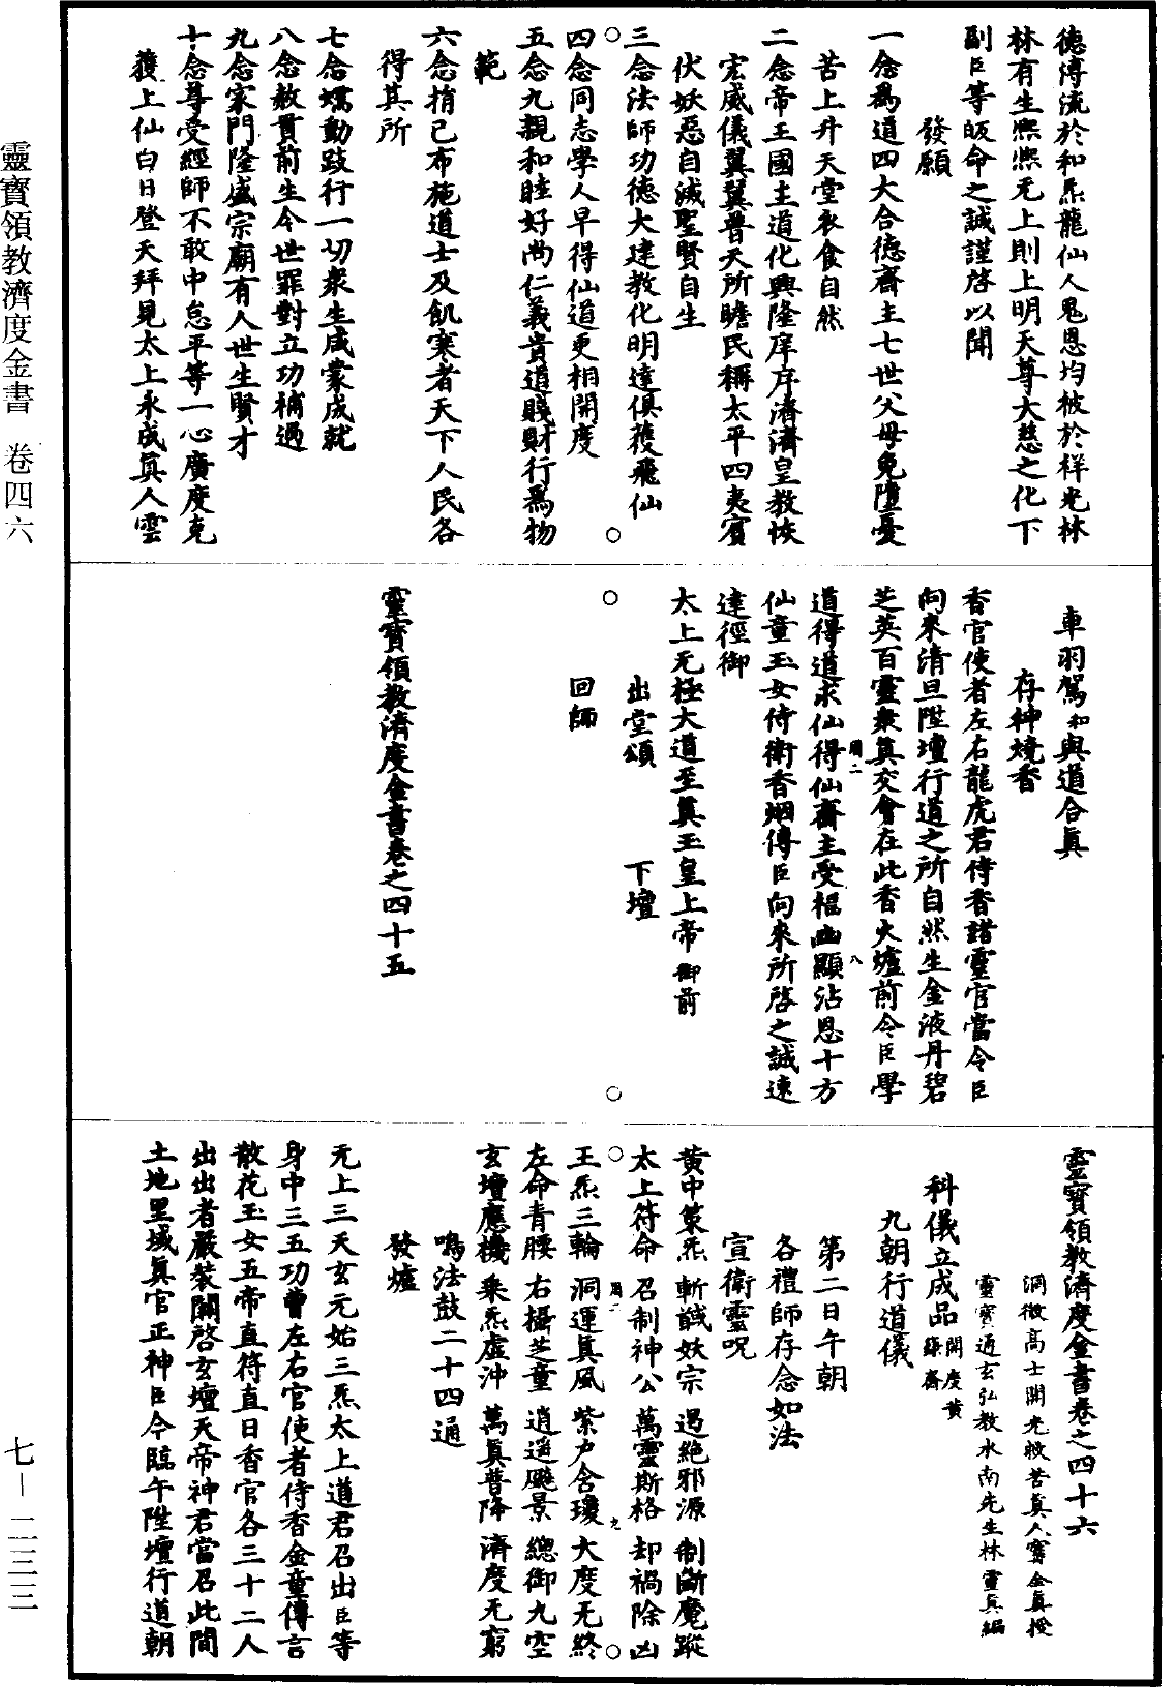 德溥流於和炁龍仙人鬼恩均被於祥光林
林有生熙熙无上則上明天尊大慈之化下
副臣等皈命之誠謹啓以聞
發願
一念爲道四大合德齋主七世父母免墮憂
苦上升天堂衣食自然
二念帝王國主道化興隆庠序濟濟皇教恢
宏威儀翼翼普天所瞻民稱太平四夷賓
伏妖惡自滅聖賢自生
三念法師功德大建教化明達俱獲飛仙
四念同志學人早得仙道更相開度
五念九親和睦好尚仁義貴道賤財行爲物
範
六念捐己布施道士及飢寒者天下人民各
得其所
七念蠕動跂行一切衆生咸蒙成就
八念赦貰前生今世罪對立功補過
九念家門隆盛宗廟有人世生賢才
十念尊受經師不敢中怠平等一心廣度克
獲上仙白日登天拜見太上永成眞人雲
車羽駕和與道合眞
存神燒香
香官使者左右龍虎君侍香諸靈官當令臣
向來清旦陞壇行道之所自然生金液丹碧
芝英百靈衆眞交會在此香火爐前令臣學
道得道求仙得仙齋主受福幽顯沾恩十方
仙童玉女侍衛香烟傳臣向來所啓之誠速
達徑御
太上无極大道至眞玉皇上帝御前
出堂頌 下壇
回師
靈寶領教濟度金書卷之四十五
靈寶領教濟度金書卷之四十六
洞微高士開光救苦眞人甯全眞授
靈寶通玄弘教水南先生林靈眞編
科儀立成品開度黃籙齋
九朝行道儀
第二日午朝
各禮師存念如法
宣衛靈呪
黃中策炁 斬馘妖宗 遏絶邪源 制斷魔蹤
太上符命 召制神公 萬靈斯格 却禍除凶
王炁三輪 洞運眞風 紫户含瓊 大度无終
左命青腰 右攝芝童 逍遥飈景 總御九空
玄壇應機 乘炁虛沖 萬眞普降 濟度无窮
鳴法鼓二十四通
發爐
无上三天玄元始三炁太上道君召出臣等
身中三五功曹左右官使者侍香金童傳言
散花玉女五帝直符直日香官各三十二人
出出者嚴裝關啓玄壇天帝神君當召此間
土地里域眞官正神臣今臨午陞壇行道朝
靈寶領教濟度金書 卷四六
七—二三三